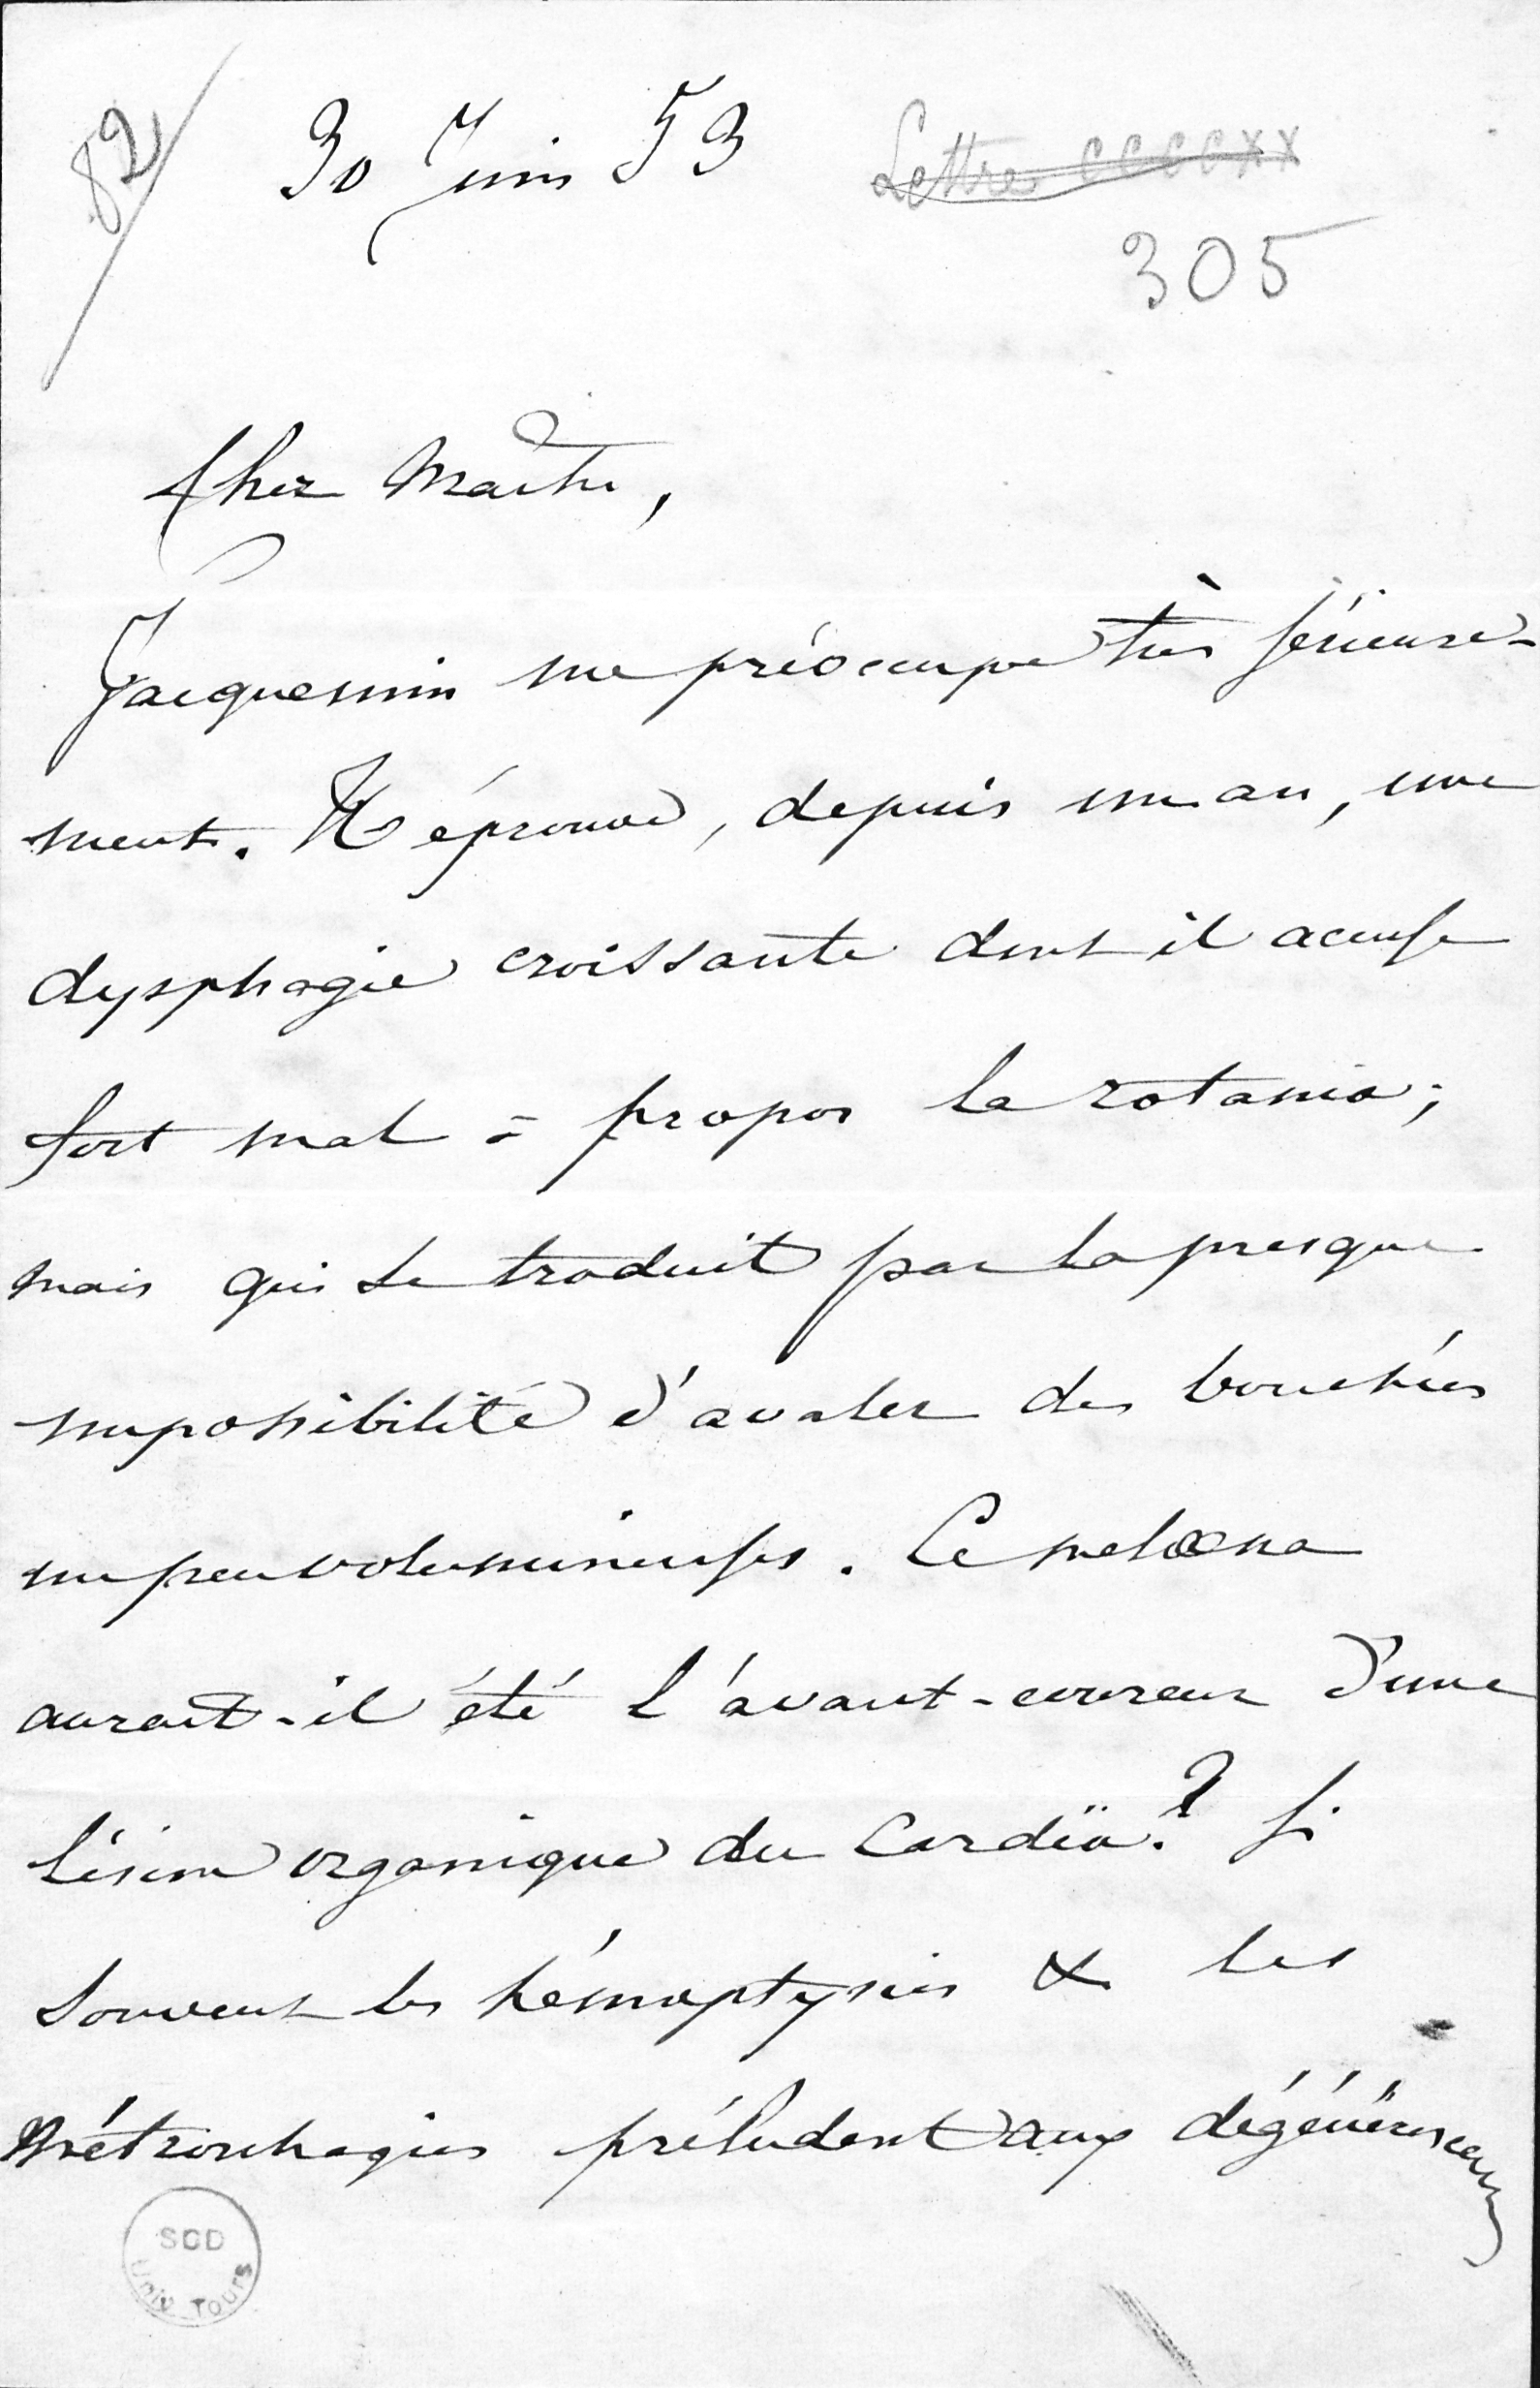 82
30 Juin 53
Lettre CCCCXX
305
Cher Maître,
Jacquemin me préoccupe très sérieuse-
ment. Il éprouve, depuis un an, une
dysphagie croissante dont il accuse
fort mal à propos le ratania;
mais qui se traduit par la presque
impossibilité d'avaler des bouchées
un peu volumineuses. Le melœna
aurait-il été l'avant-coureur d'une
lésion organique du Cardia? Si
souvent les hémoptysies & les
Métrorrhagies préludent aux dégénérescences
SCD
Univ. Tours